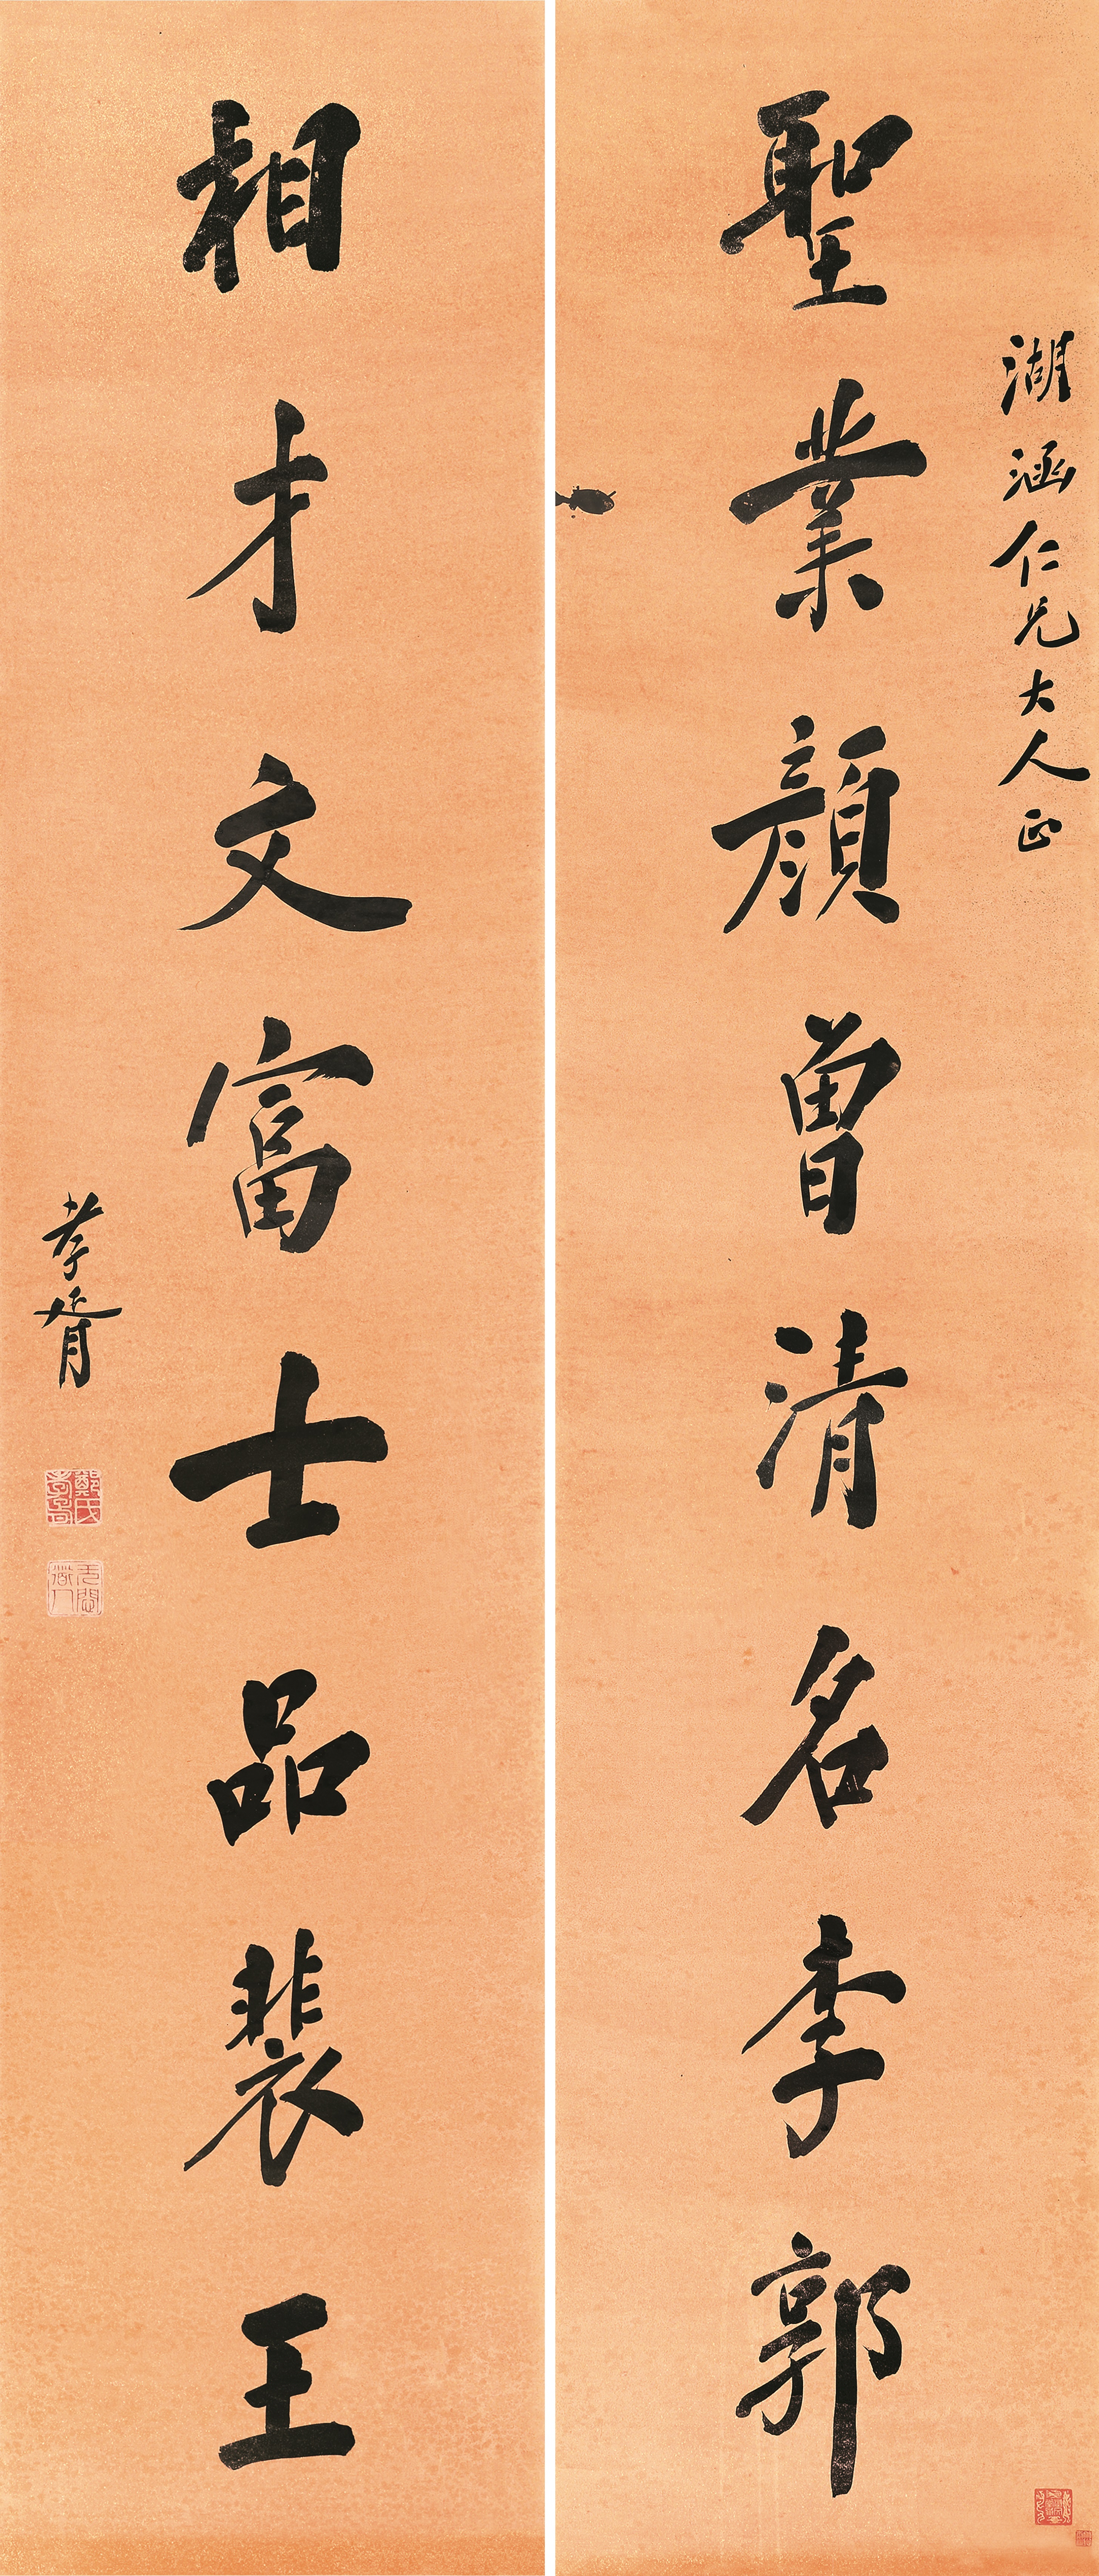 湖涵仁兄大人正
聖業顏曾清名李郭
相才文富士品裴王
孝胥
鄭氏孝胥